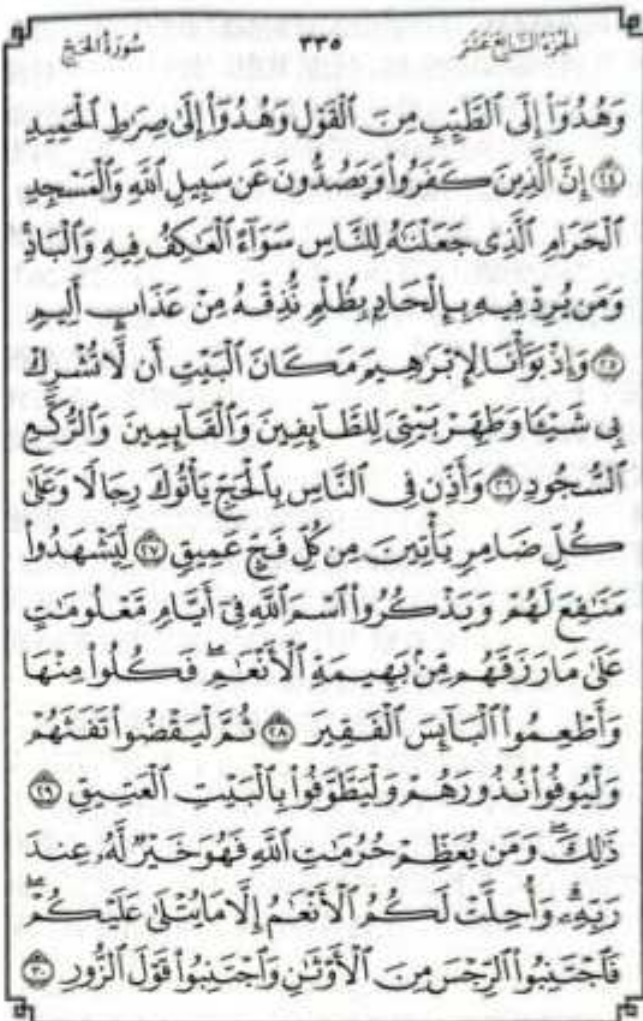 سُورَةُ الحَجّ ٣٣٥ الجُزءُ السَّابِعَ عَشَرَ
وَهُدُوٓاْ إِلَى ٱلطَّيِّبِ مِنَ ٱلْقَوْلِ وَهُدُوٓاْ إِلَىٰ صِرَٰطِ ٱلْحَمِيدِ
٢٤ إِنَّ ٱلَّذِينَ كَفَرُواْ وَيَصُدُّونَ عَن سَبِيلِ ٱللَّهِ وَٱلْمَسْجِدِ
ٱلْحَرَامِ ٱلَّذِى جَعَلْنَٰهُ لِلنَّاسِ سَوَآءً ٱلْعَٰكِفُ فِيهِ وَٱلْبَادِ
وَمَن يُرِدْ فِيهِ بِإِلْحَادٍ بِظُلْمٍ نُّذِقْهُ مِنْ عَذَابٍ أَلِيمٍ
٢٥ وَإِذْ بَوَّأْنَا لِإِبْرَٰهِيمَ مَكَانَ ٱلْبَيْتِ أَن لَّا تُشْرِكْ
بِى شَيْـًٔا وَطَهِّرْ بَيْتِىَ لِلطَّآئِفِينَ وَٱلْقَآئِمِينَ وَٱلرُّكَّعِ
ٱلسُّجُودِ ٢٦ وَأَذِّن فِى ٱلنَّاسِ بِٱلْحَجِّ يَأْتُوكَ رِجَالًا وَعَلَىٰ
كُلِّ ضَامِرٍ يَأْتِينَ مِن كُلِّ فَجٍّ عَمِيقٍ ٢٧ لِّيَشْهَدُواْ
مَنَٰفِعَ لَهُمْ وَيَذْكُرُواْ ٱسْمَ ٱللَّهِ فِىٓ أَيَّامٍ مَّعْلُومَٰتٍ
عَلَىٰ مَا رَزَقَهُم مِّنۢ بَهِيمَةِ ٱلْأَنْعَٰمِ ۖ فَكُلُواْ مِنْهَا
وَأَطْعِمُواْ ٱلْبَآئِسَ ٱلْفَقِيرَ ٢٨ ثُمَّ لْيَقْضُواْ تَفَثَهُمْ
وَلْيُوفُواْ نُذُورَهُمْ وَلْيَطَّوَّفُواْ بِٱلْبَيْتِ ٱلْعَتِيقِ ٢٩
ذَٰلِكَ ۖ وَمَن يُعَظِّمْ حُرُمَٰتِ ٱللَّهِ فَهُوَ خَيْرٌ لَّهُۥ عِندَ
رَبِّهِۦ ۗ وَأُحِلَّتْ لَكُمُ ٱلْأَنْعَٰمُ إِلَّا مَا يُتْلَىٰ عَلَيْكُمْ ۖ
فَٱجْتَنِبُواْ ٱلرِّجْسَ مِنَ ٱلْأَوْثَٰنِ وَٱجْتَنِبُواْ قَوْلَ ٱلزُّورِ ٣٠